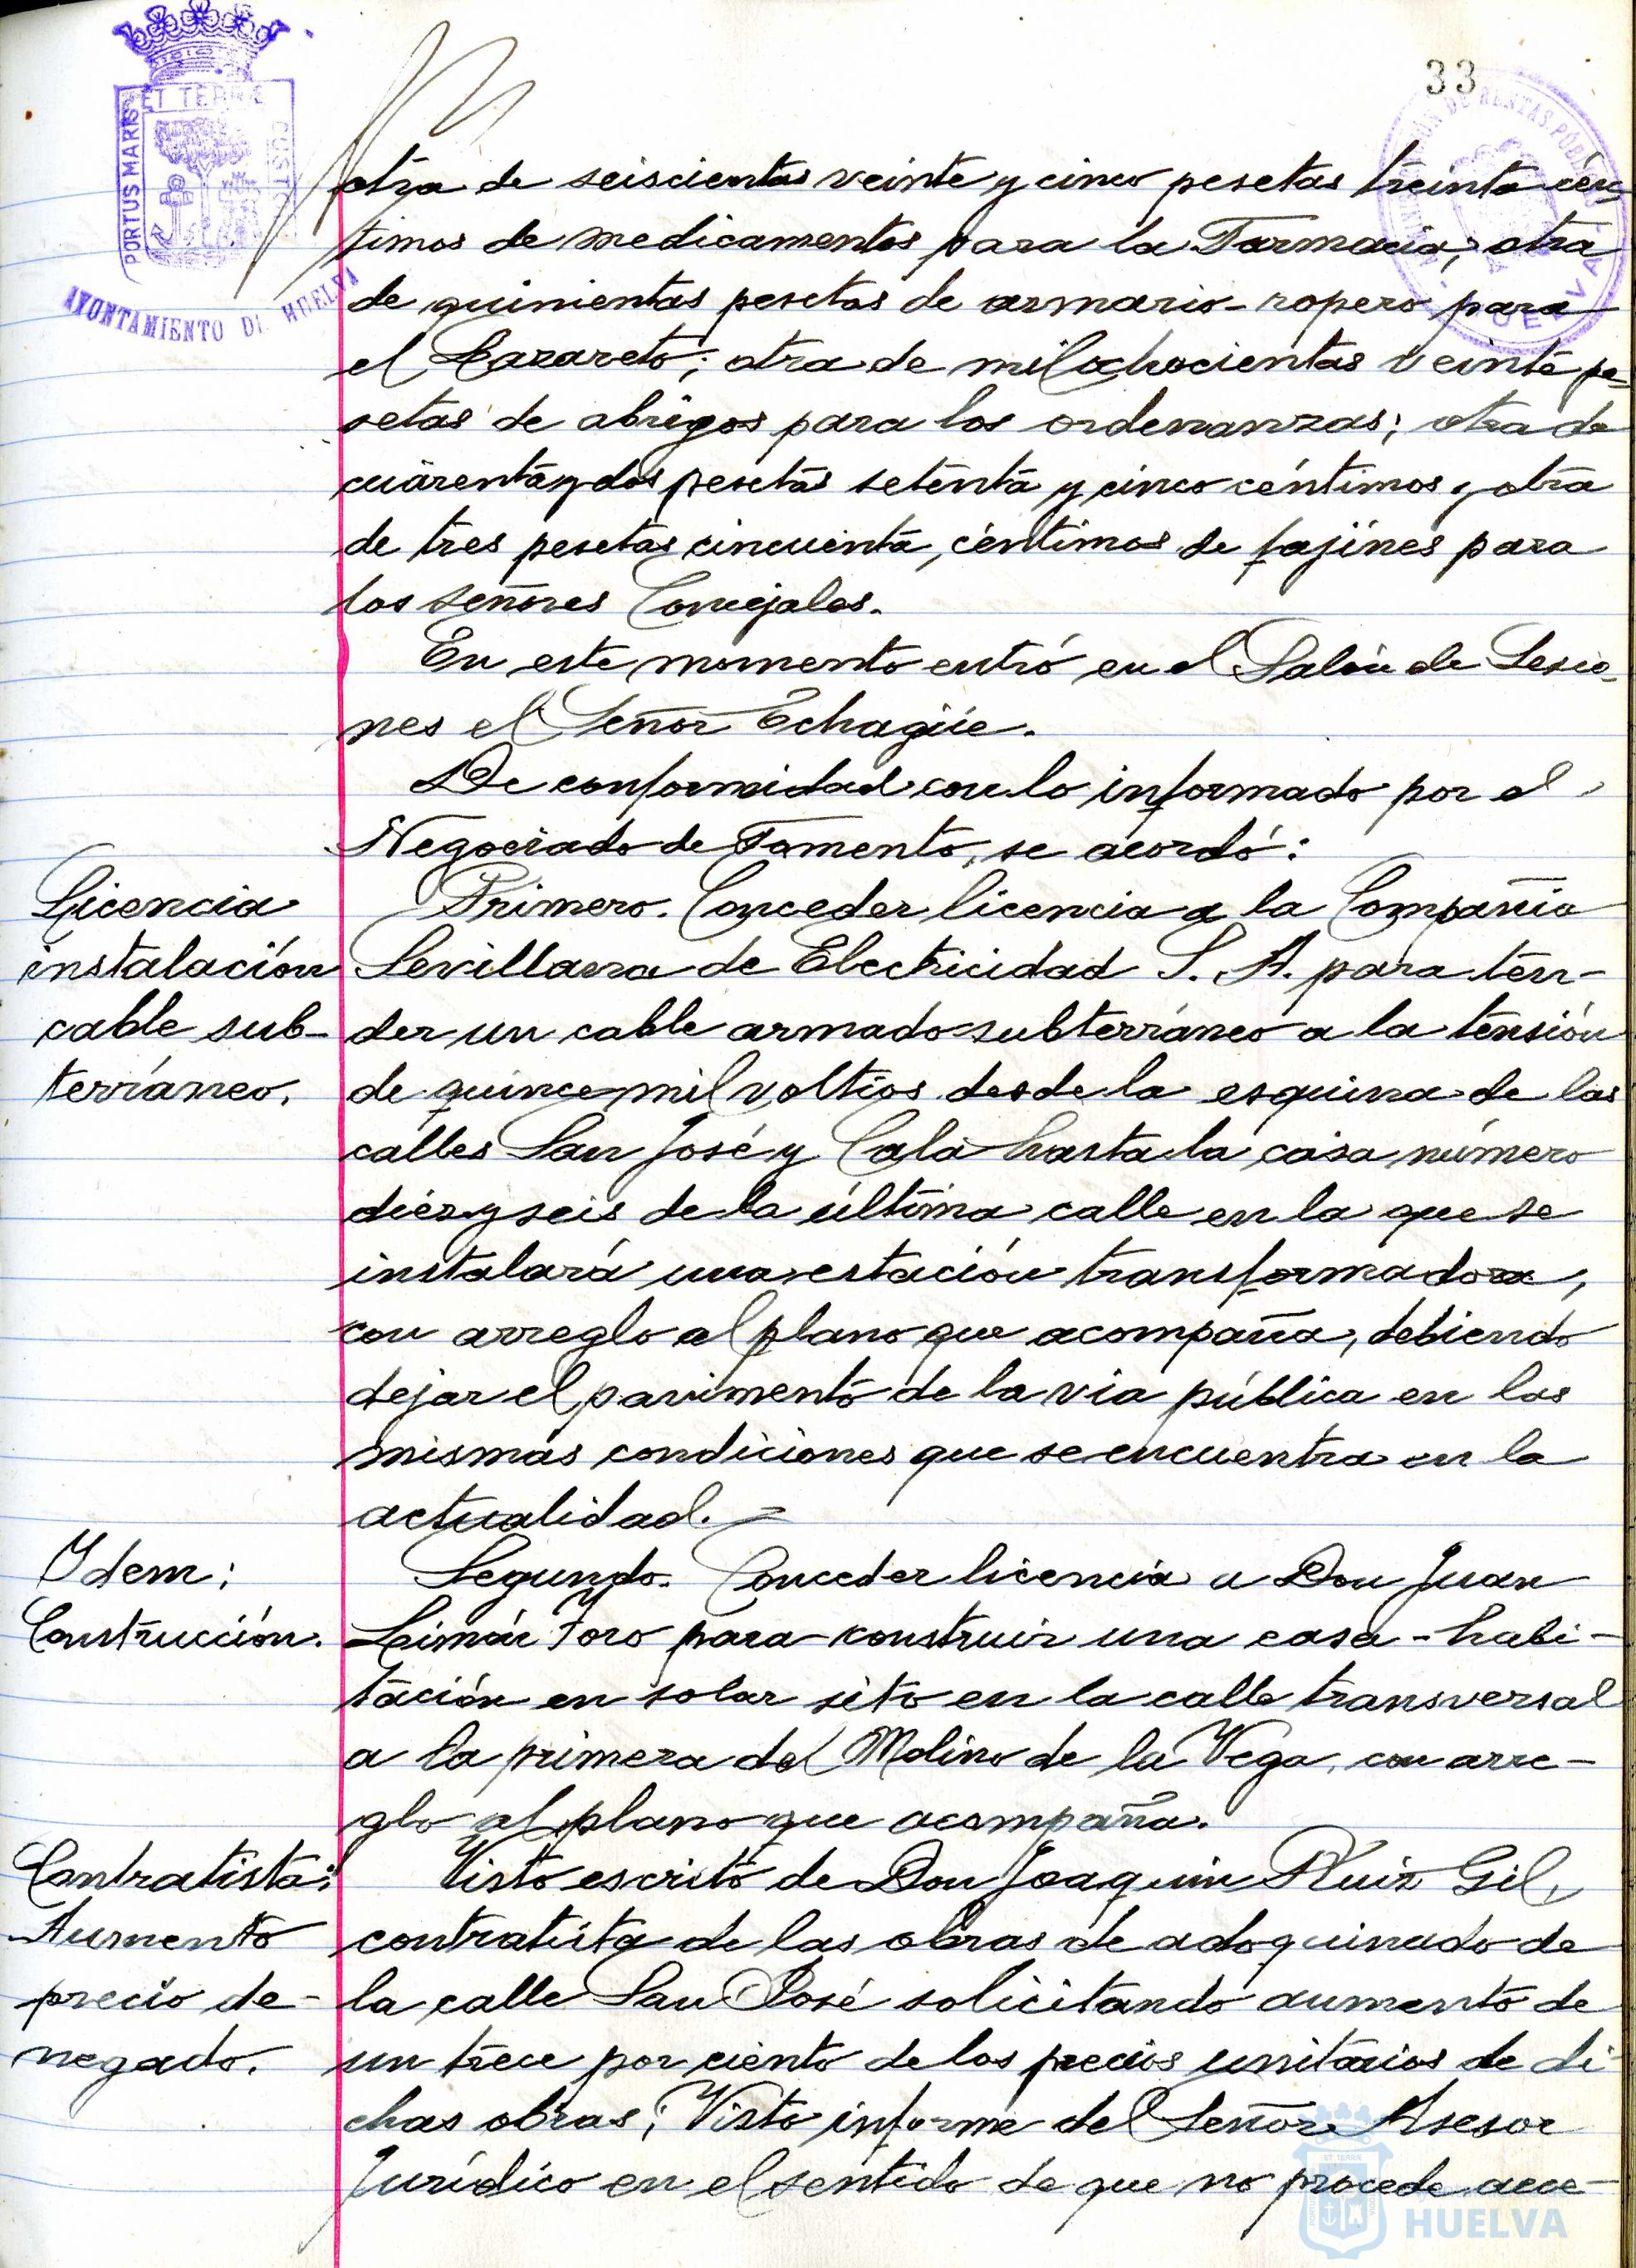 33
ET TERRÆ
PORTUS MARIS
CUSTO
AYUNTAMIENTO DE HUELVA
DE RENTAS PÚBLICAS
HUELVA
otra de seiscientas veinte y cinco pesetas treinta cén-
timos de medicamentos para la Farmacia; otra
de quinientas pesetas de armario-ropero para
el Lazareto; otra de mil ochocientas veinte pe-
setas de abrigos para los ordenanzas; otra de
cuarenta y dos pesetas setenta y cinco céntimos y otra
de tres pesetas cincuenta céntimos de fajines para
los señores Concejales.
En este momento entró en el Salón de Sesio-
nes el Señor Echagüe.
De conformidad con lo informado por el
Negociado de Fomento, se acordó:
Licencia
instalación
cable sub-
terráneo.
Primero. Conceder licencia a la Compañía
Sevillana de Electricidad S. A. para ten-
der un cable armado subterráneo a la tensión
de quince mil voltios desde la esquina de las
calles San José y Cala hasta la casa número
diez y seis de la última calle en la que se
instalará una estación transformadora,
con arreglo al plano que acompaña, debiendo
dejar el pavimento de la vía pública en las
mismas condiciones que se encuentra en la
actualidad. =
Idem:
Construcción.
Segundo. Conceder licencia a Don Juan
Limón Toro para construir una casa-habi-
tación en solar sito en la calle transversal
a la primera del Molino de la Vega, con arre-
glo al plano que acompaña.
Contratista:
Aumento
precio de-
negado.
Visto escrito de Don Joaquin Ruiz Gil,
contratista de las obras de adoquinado de
la calle San José solicitando aumento de
un trece por ciento de los precios unitarios de di-
chas obras; Visto informe del Señor Asesor
Jurídico en el sentido de que no procede acce-
HUELVA